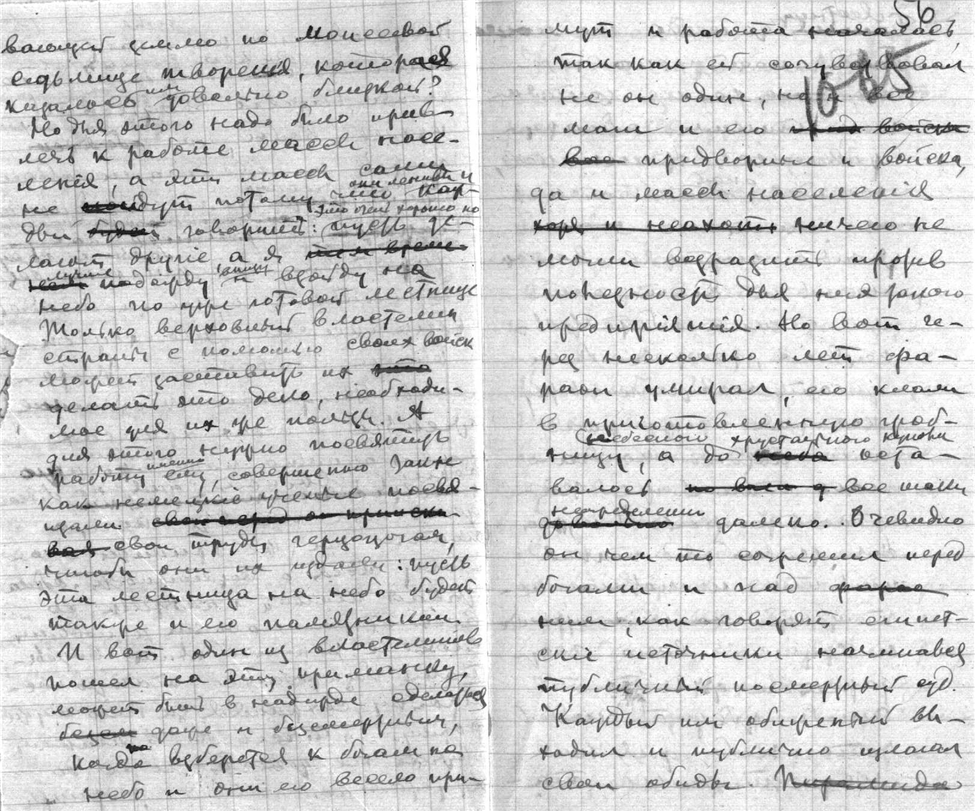 вающей землю по Моисеевой
седьмице творения, которая
казалось им довольно близкой?
Но для этого надо было прив-
лечь к работе массы насе-
ленія, а эти массы сами
не пойдут потому что они ленивы и каж-
дый будет говорить: это очень хорошо но пусть де-
лают другіе а я
лучше подожду и взойду на
небо по уже готовой лестнице
Только верховный властелин
страны с помощью своих войск
может заставить их
делать это дело, необходи-
мое для их же пользы. А
для этого нужно посвятить
работу именно ему, совершенно также
как немецкие ученые посвя-
щали
свои труды герцогам,
чтобы они их издали: пусть
эта лестница на небо будет
также и его памятником
И вот один из властелинов
пошел на эту приманку,
может быть в надежде сделаться
даже и безсмертным,
когда взберется к богам на
небо и они его весело при-
56
мут и работа началась,
10-05
так как ей сочувствовал
не он один, но и все
маги и его войска
все придворные и войска,
да и массы населенія
хотя и неохотно ничего не
могли возразить против
полезности для них такого
предпріятія. Но вот че-
рез несколько лет фа-
раон умирал, его клали
в приготовленную гроб-
небесного хрустального купола
ницу, а до неба оста-
валось все таки
неопределенно
далеко. Очевидно
он чем то согрешил перед
богами и над
ним, как говорят египет-
ские источники начинался
публичный посмертный суд.
Каждый им обиженый вы-
ходил и публично излагал
свои обиды. Пирамида